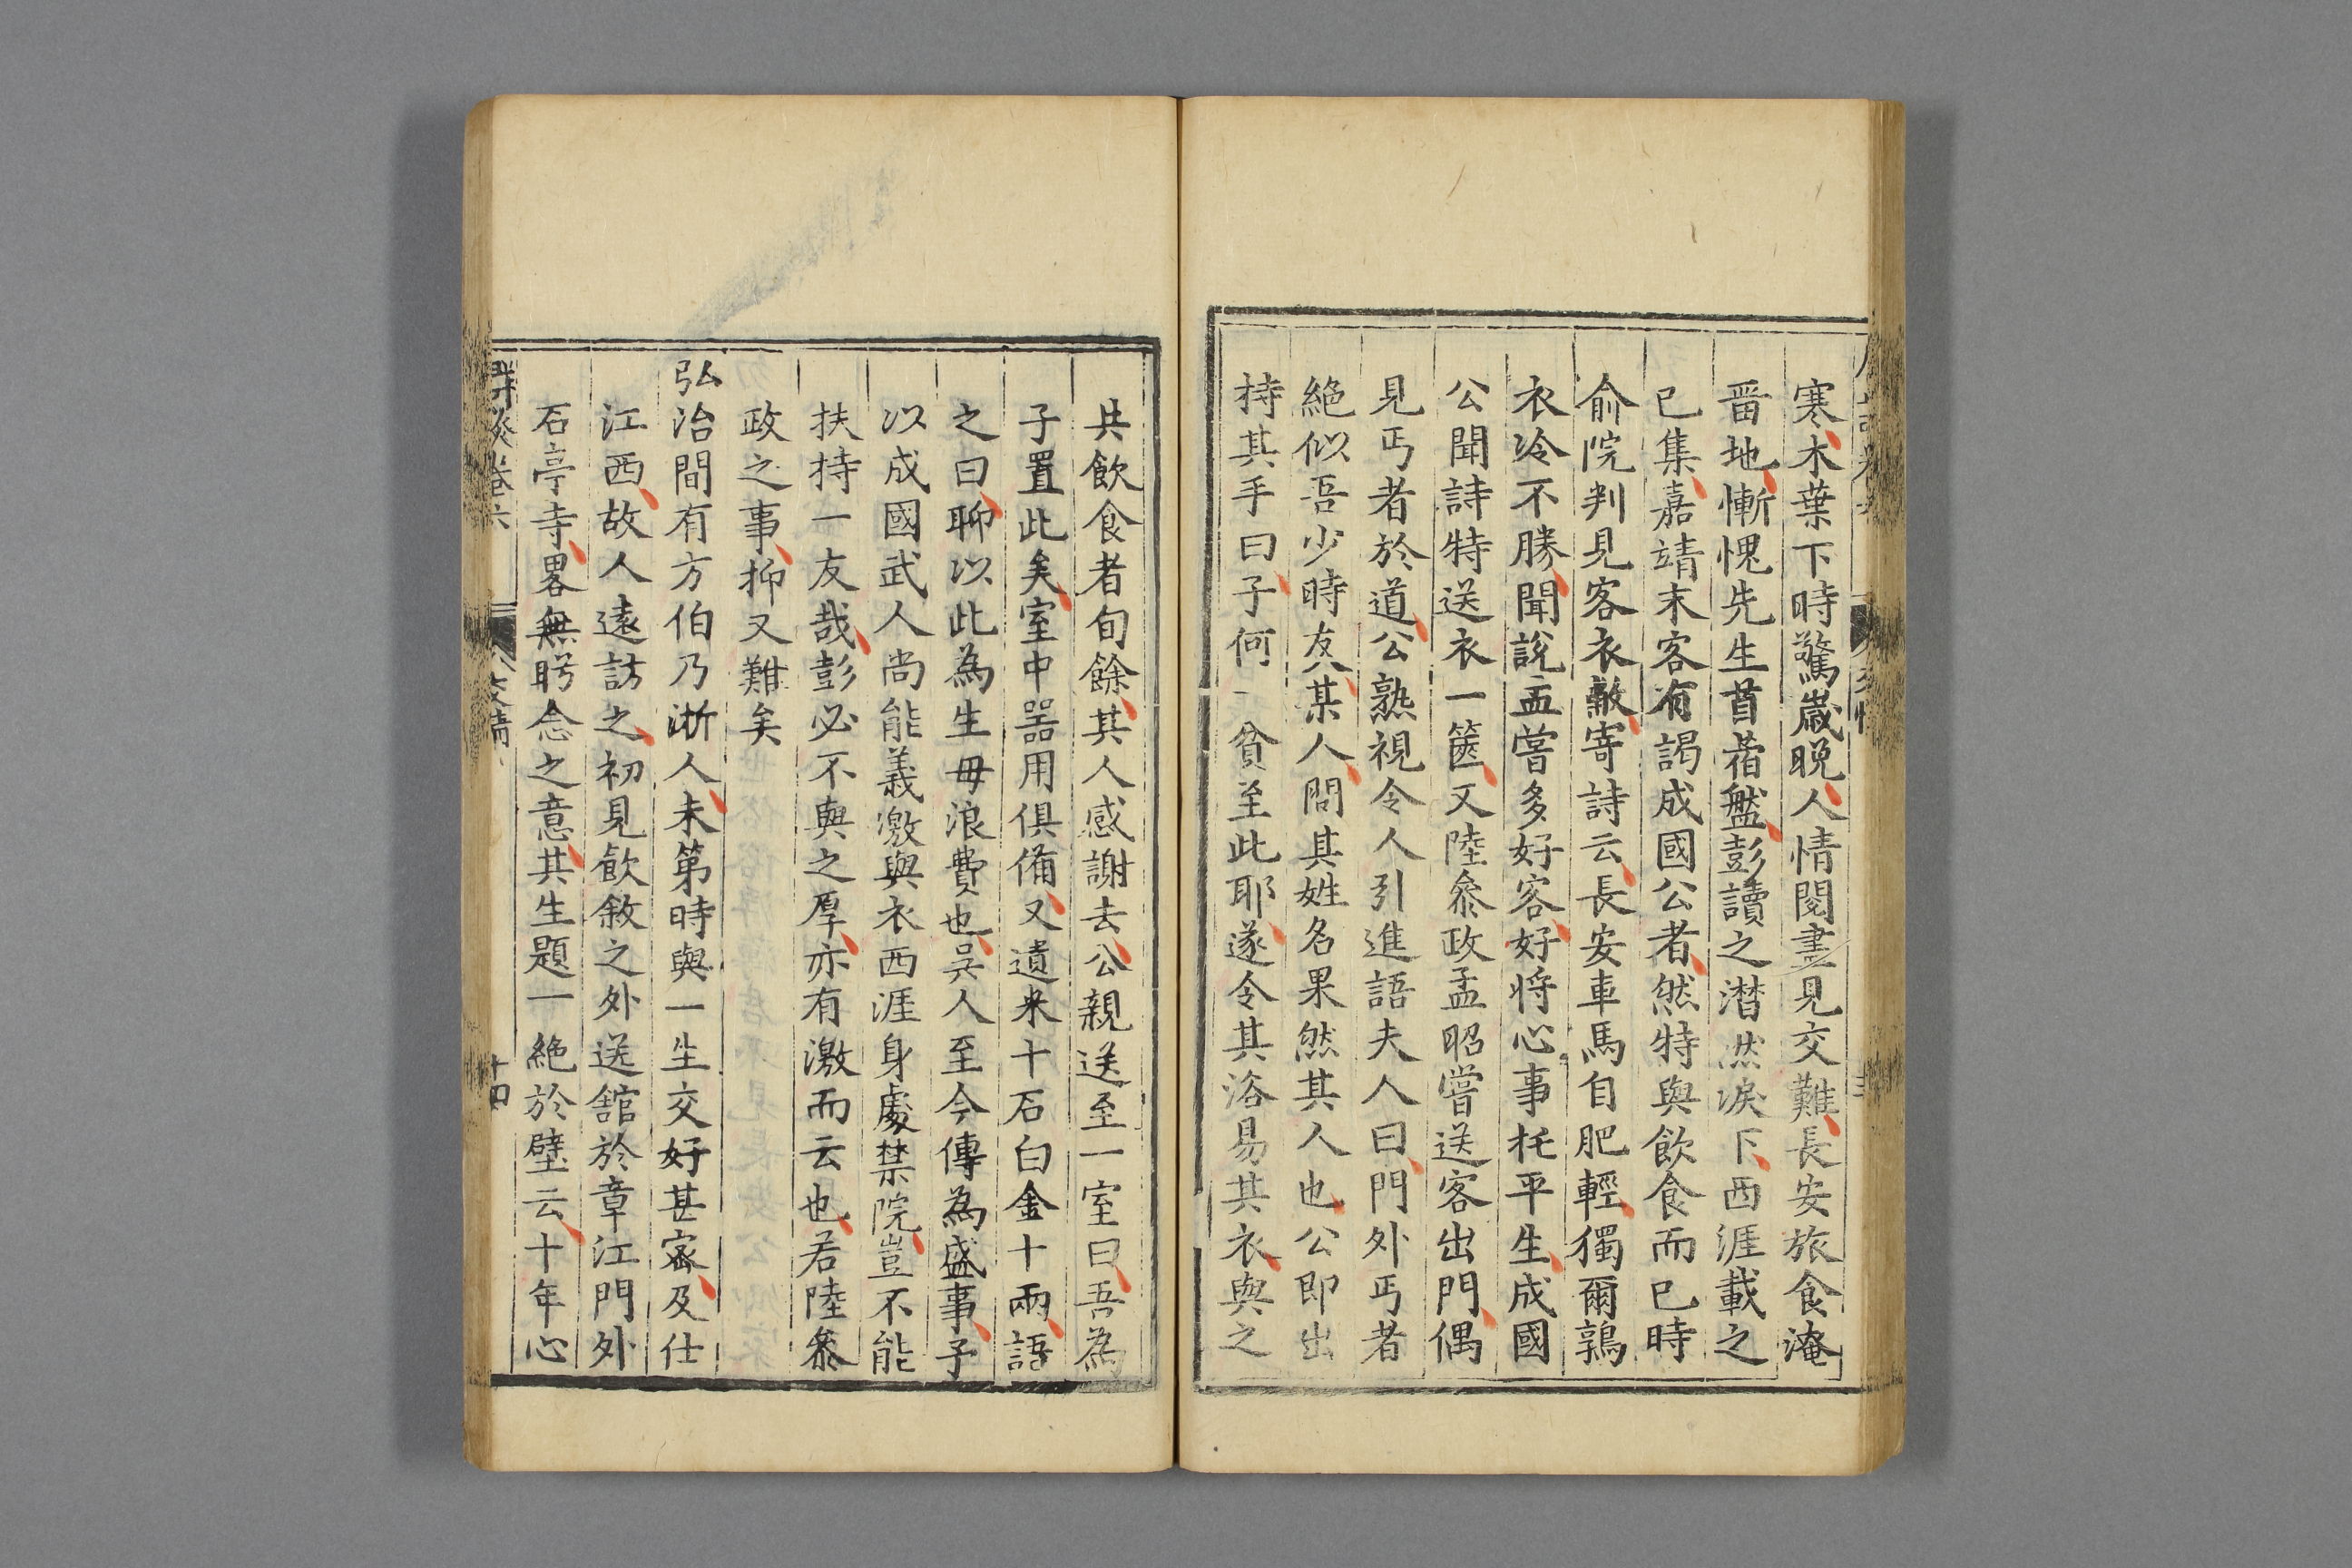 寒木葉下時驚歲晚人情閱盡見交難長安旅食淹
畱地慚愧先生苜蓿盤彭讀之潸然淚下西涯載之
已集嘉靖末客有謁成國公者然特與飲食而已時
俞院判見客衣敝寄詩云長安車馬自肥輕獨爾鶉
衣冷不勝聞說孟嘗多好客好將心事托平生成國
公聞詩特送衣一篋又陸叅政孟昭嘗送客出門偶
見丐者於道公熟視令人引進語夫人曰門外丐者
絕似吾少時友人某人問其姓名果然其人也公即出
持其手曰子何一貧至此耶遂令其浴易其衣與之
共飲食者旬餘其人感謝去公親送至一室曰吾為
子置此矣室中器用俱備又遺米十石白金十兩語
之曰聊以此為生毋浪費也吳人至今傳為盛事予
以成國武人尚能義激與衣西涯身處禁院豈不能
扶持一友哉彭必不與之厚亦有激而云也若陸叅
政之事抑又難矣
弘治間有方伯乃浙人未第時與一生交好甚密及仕
江西故人遠訪之初見飲敘之外送舘於章江門外
石亭寺畧無眄念之意其生題一絕於壁云十年心
卷六
十四